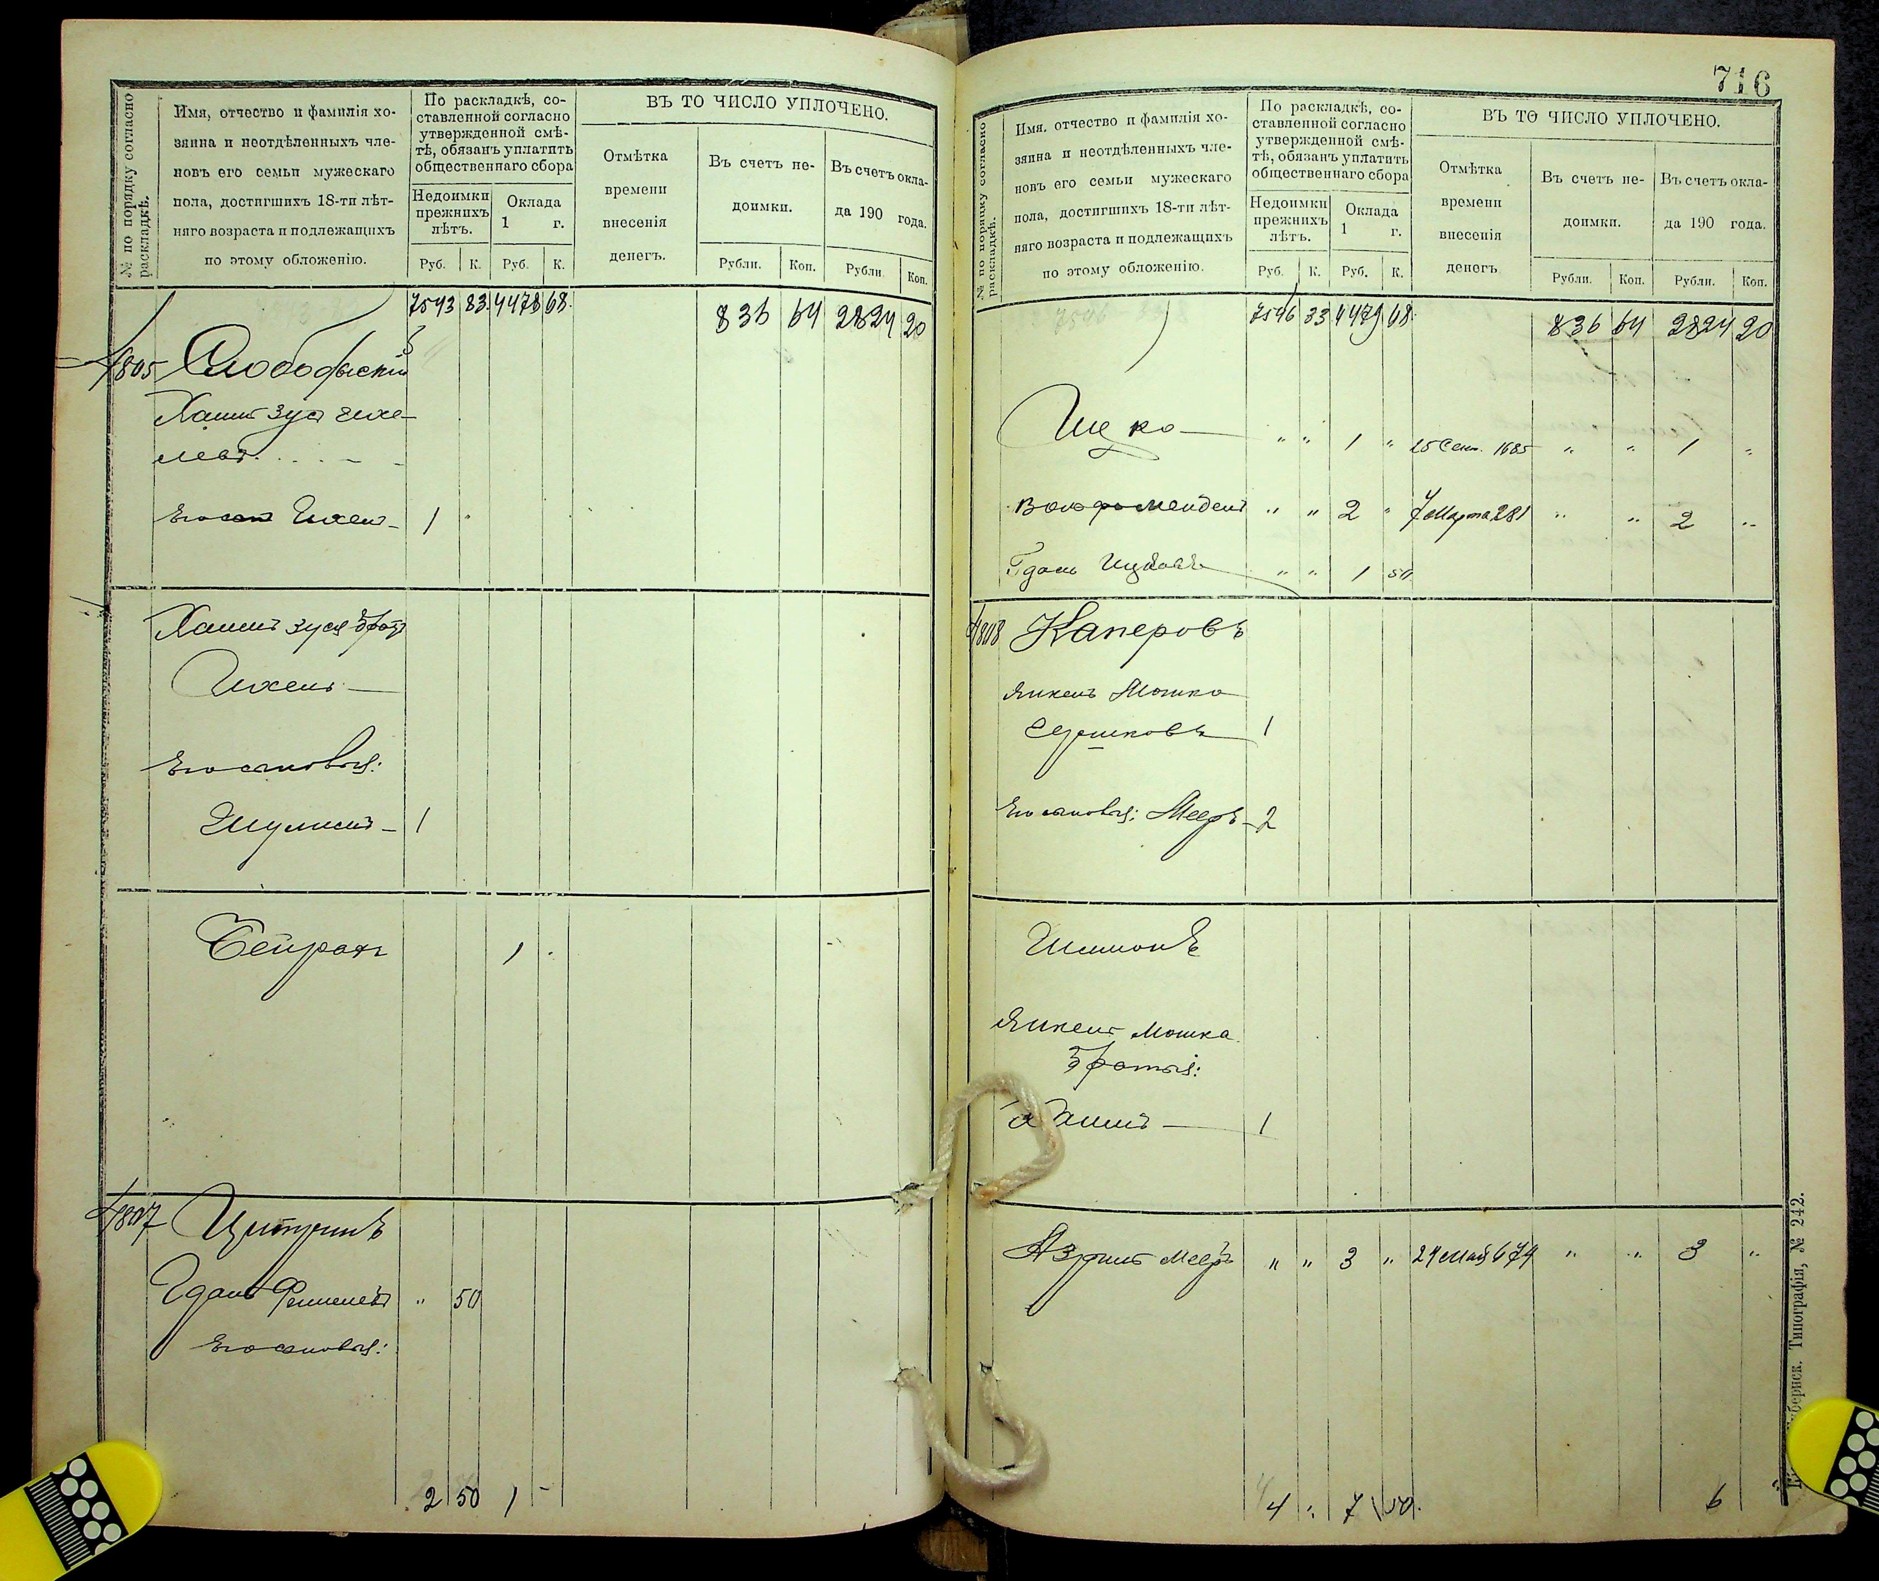 716
№ по порядку согласно раскладкѣ.
Имя, отчество и фамилія хо-
зяина и неотдѣленныхъ чле-
новъ его семьи мужескаго
пола, достигшихъ 18-ти лѣт-
няго возраста и подлежащихъ
по этому обложенію.
По раскладкѣ, со-
ставленной согласно
утвержденной смѣ-
тѣ, обязанъ уплатить
общественнаго сбора
Недоимки
прежнихъ
лѣтъ.
Оклада
1 г.
Руб. К. Руб. К.
ВЪ ТО ЧИСЛО УПЛОЧЕНО.
Отмѣтка
времени
внесенія
денегъ.
Въ счетъ не-
доимки.
Въ счетъ окла-
да 190 года.
Рубли. Коп. Рубли. Коп.
7543 83 4478 68 836 64 2824 20
4805 Слободскій
Хаимъ Зуся Ихе-
левъ
Его сынъ Ихель 1
Хаимъ Зуся братъ
Ихель
Его сыновья:
Шулимъ 1
Бейрахъ 1
4807 Цитринъ
Гдаль Фишелевъ " 50
Его сыновья:
2 50 1 -
№ по порядку согласно раскладкѣ.
Имя, отчество и фамилія хо-
зяина и неотдѣленныхъ чле-
новъ его семьи мужескаго
пола, достигшихъ 18-ти лѣт-
няго возраста и подлежащихъ
по этому обложенію.
По раскладкѣ, со-
ставленной согласно
утвержденной смѣ-
тѣ, обязанъ уплатить
общественнаго сбора
Недоимки
прежнихъ
лѣтъ.
Оклада
1 г.
Руб. К. Руб. К.
ВЪ ТО ЧИСЛО УПЛОЧЕНО.
Отмѣтка
времени
внесенія
денегъ.
Въ счетъ не-
доимки.
Въ счетъ окла-
да 190 года.
Рубли. Коп. Рубли. Коп.
7546 33 4479 68 836 64 2824 20
Ицко " " 1 " 25 Сент. 1685 " " 1 "
Вольфъ Мендель " " 2 " 7 Марта 281 " " 2 "
Гдаль Ицковъ " " 1 50
4808 Каперовъ
Янкель Мошко
Сурешковъ 1
Его сыновья: Мееръ 2
Шимонъ
Янкель Мошка
братья:
Хаимъ 1
Азриль Мееръ " " 3 " 24 Май 674 " " 3 "
4 " 7 50 6
Типографія, № 242.